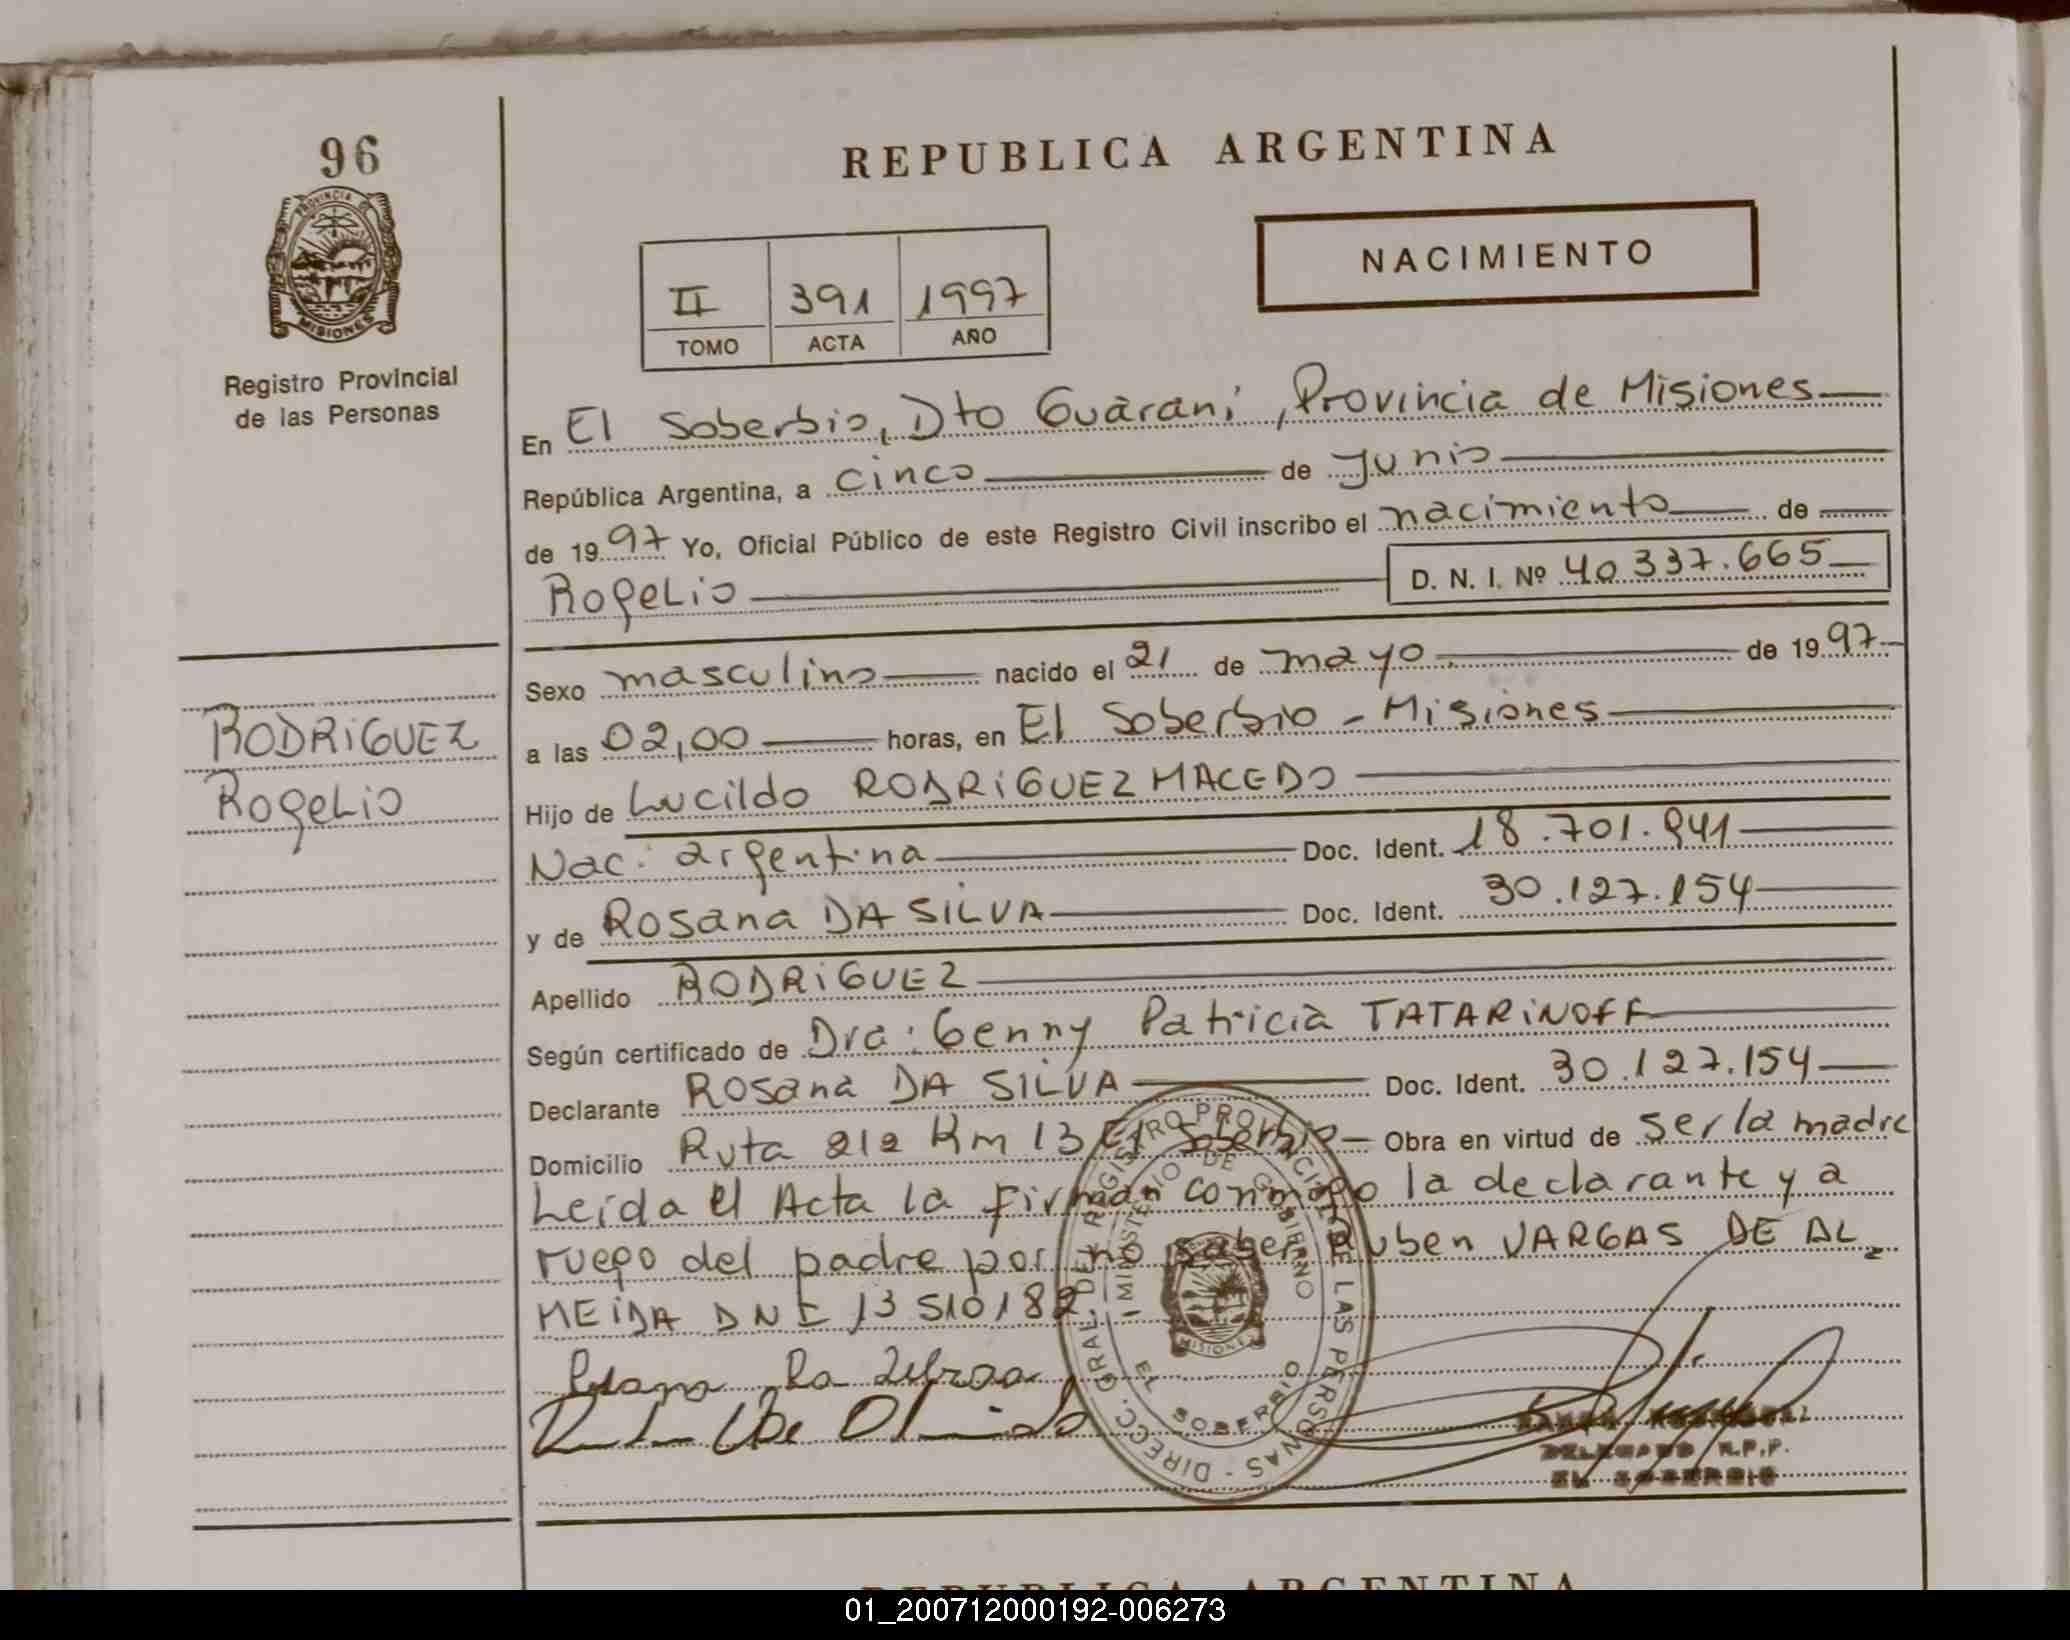 96
PROVINCIA DE
MISIONES
Registro Provincial
de las Personas
RODRIGUEZ
Rogelio
REPUBLICA ARGENTINA
NACIMIENTO
II 391 1997
TOMO ACTA AÑO
En El Soberbio, Dto Guaraní, Provincia de Misiones
República Argentina, a cinco de Junio
de 1997 Yo, Oficial Público de este Registro Civil inscribo el nacimiento de
Rogelio D. N. I. Nº 40 337.665
Sexo masculino nacido el 21 de mayo de 1997
a las 02,00 horas, en El Soberbio - Misiones
Hijo de Lucildo RODRIGUEZ MACEDO
Nac: argentina Doc. Ident. 18.701.941
y de Rosana DA SILVA Doc. Ident. 30.127.154
Apellido RODRIGUEZ
Según certificado de Dra: Genny Patricia TATARINOFF
Declarante Rosana DA SILVA Doc. Ident. 30.127.154
Domicilio Ruta 212 Km 13 El Soberbio Obra en virtud de ser la madre
Leída el Acta la firman conmigo la declarante y a
ruego del padre por no saber Ruben VARGAS DE AL
MEIDA DNI 13 510182.
DIRECC. GRAL. DEL REGISTRO PROVINCIAL DE LAS PERSONAS -
MINISTERIO DE GOBIERNO
MISIONES
EL SOBERBIO
DELEGADO R.P.P.
EL SOBERBIO
REPUBLICA ARGENTINA
01_200712000192-006273